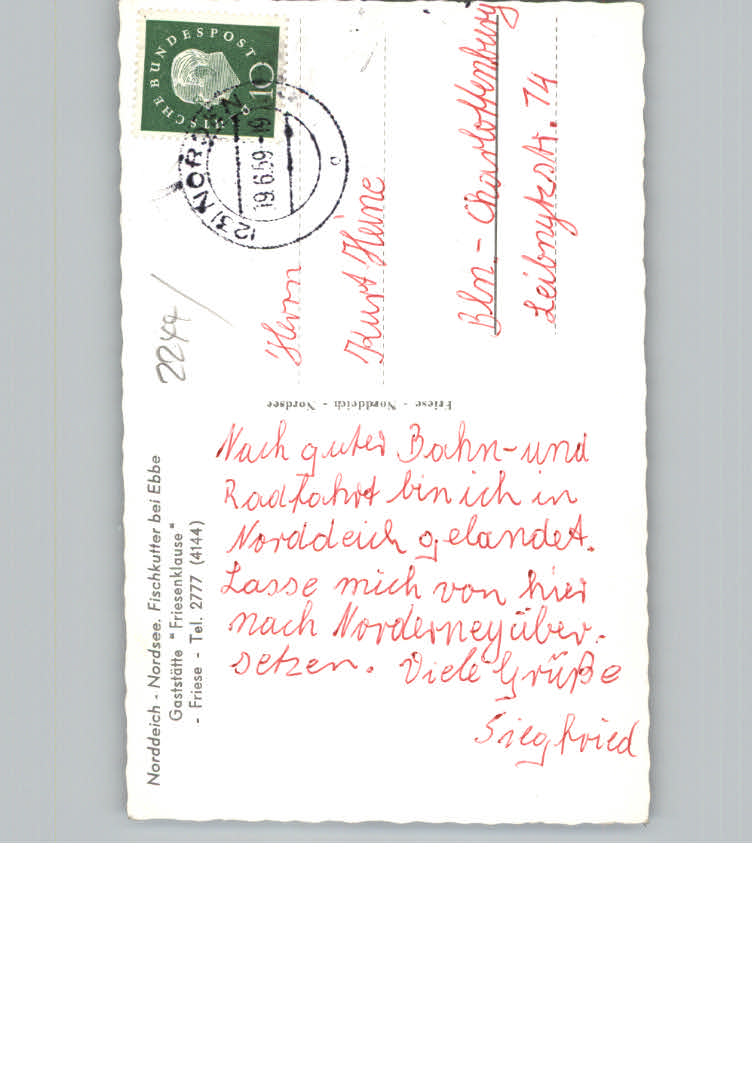 Norddeich - Nordsee. Fischkutter bei Ebbe
Gaststätte "Friesenklause"
- Friese - Tel. 2777 (4144)
Nach guter Bahn- und
Radfahrt bin ich in
Norddeich gelandet.
Lasse mich von hier
nach Norderney über-
setzen. Viele Grüße
Siegfried
Friese - Norddeich - Nordsee
DEUTSCHE BUNDESPOST
10
(23) NORDEN
19.6.59-19
c
2244
Herrn
Kurt Heine
Bln.-Charlottenburg
Leibnytzstr. 74